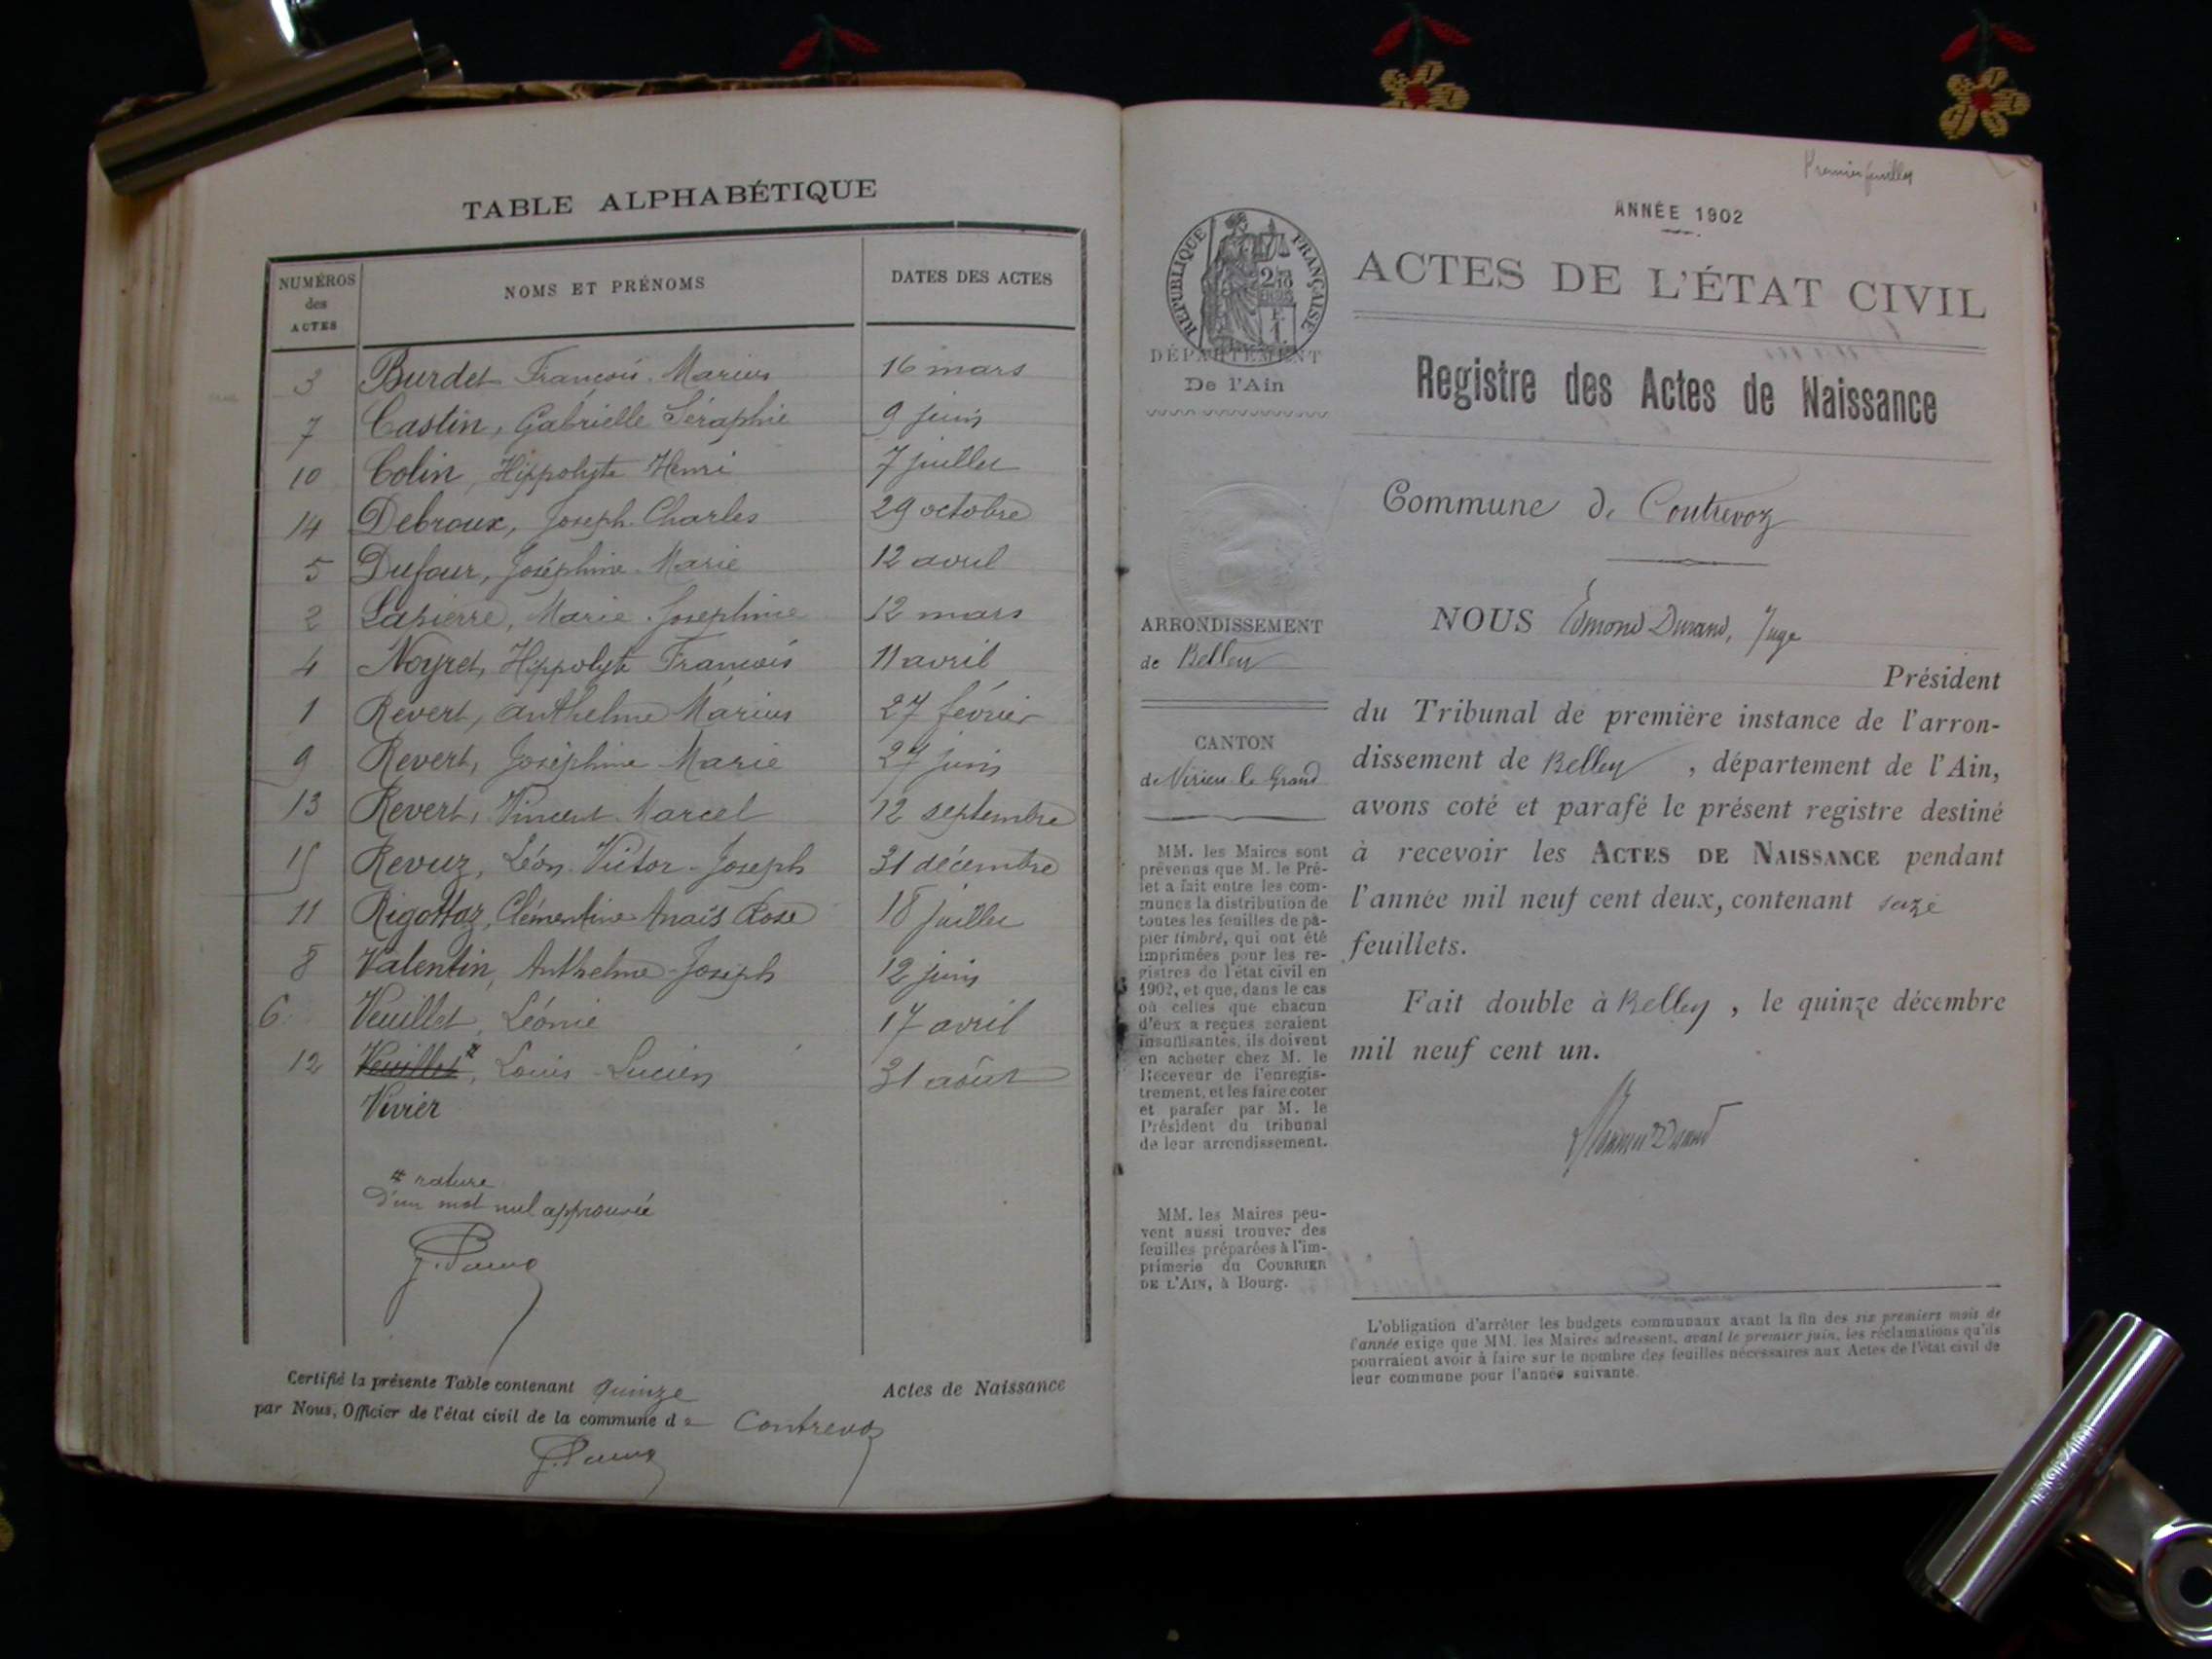 TABLE ALPHABÉTIQUE
NUMÉROS des ACTES NOMS ET PRÉNOMS DATES DES ACTES
3 Burdet François Marius 16 mars
7 Castin, Gabrielle Séraphie 9 juin
10 Colin, Hippolyte Henri 7 juillet
14 Debroux, Joseph Charles 29 octobre
5 Dufour, Joséphine Marie 12 avril
2 Lapierre, Marie Josephine 12 mars
4 Noyret, Hippolyte François 11 avril
1 Revert, Anthelme Marius 27 février
9 Revert, Joséphine Marie 27 juin
13 Revert, Vincent Marcel 12 septembre
15 Revuz, Léon Victor Joseph 31 décembre
11 Rigottaz, Clémentine Anaïs Rose 18 juillet
8 Valentin, Anthelme Joseph 12 juin
6 Veuillet, Léonie 17 avril
12 Veuillet #, Louis Lucien 31 août
Vivier
# rature
d'un mot nul approuvée
Certifié la présente Table contenant quinze Actes de Naissance
par Nous, Officier de l'état civil de la commune de Contrevoz
Premier feuillet
ANNÉE 1902
RÉPUBLIQUE FRANÇAISE
ACTES DE L'ÉTAT CIVIL
DÉPARTEMENT
De l'Ain
Registre des Actes de Naissance
Commune de Contrevoz
ARRONDISSEMENT
de Belley
CANTON
de Virieu le Grand
MM. les Maires sont
prévenus que M. le Pré-
fet a fait entre les com-
munes la distribution de
toutes les feuilles de pa-
pier timbré, qui ont été
imprimées pour les re-
gistres de l'état civil en
1902, et que, dans le cas
où celles que chacun
d'eux a reçues seraient
insuffisantes, ils doivent
en acheter chez M. le
Receveur de l'enregis-
trement, et les faire coter
et parafer par M. le
Président du tribunal
de leur arrondissement.
MM. les Maires peu-
vent aussi trouver des
feuilles préparées à l'im-
primerie du COURRIER
DE L'AIN, à Bourg.
NOUS Edmond Durand, Juge
Président
du Tribunal de première instance de l'arron-
dissement de Belley, département de l'Ain,
avons coté et parafé le présent registre destiné
à recevoir les ACTES DE NAISSANCE pendant
l'année mil neuf cent deux, contenant seize
feuillets.
Fait double à Belley, le quinze décembre
mil neuf cent un.
L'obligation d'arrêter les budgets communaux avant la fin des six premiers mois de
l'année exige que MM. les Maires adressent, avant le premier juin, les réclamations qu'ils
pourraient avoir à faire sur le nombre des feuilles nécessaires aux Actes de l'état civil de
leur commune pour l'année suivante.